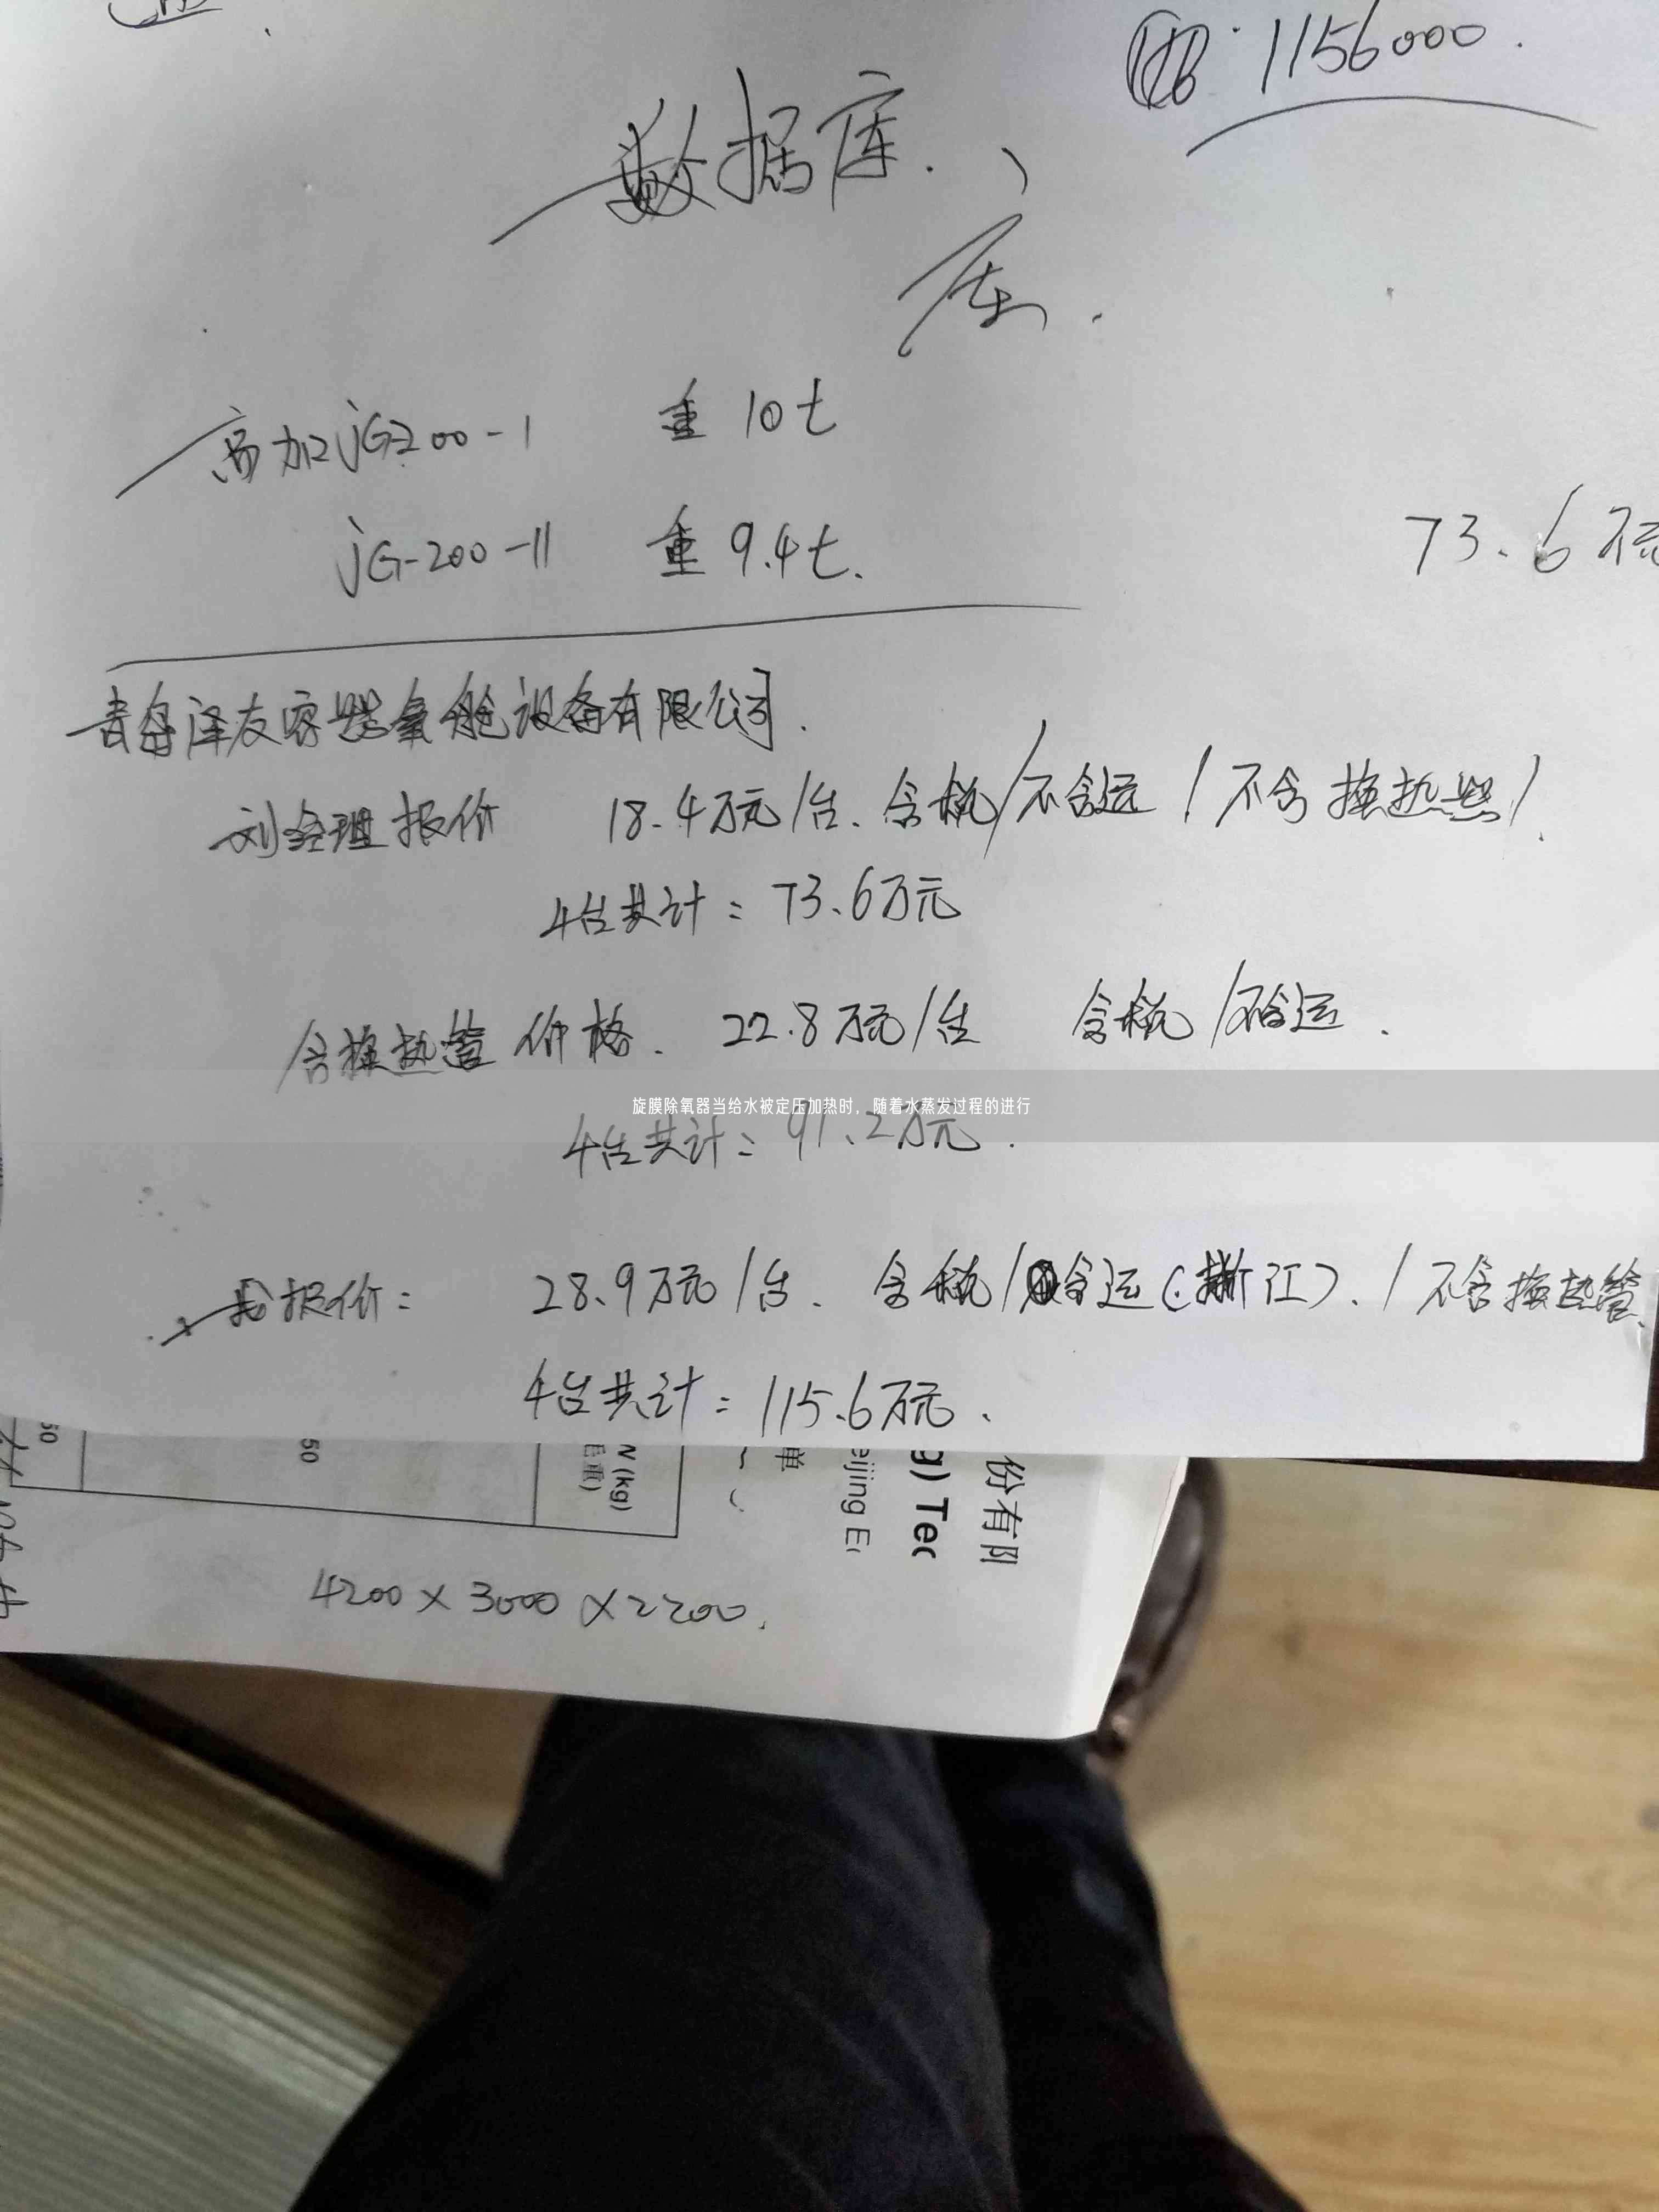 1156000.
数据库.、
高加jG200-1 重 10t
jG-200-11 重 9.4t.
73.6万
青岛泽友容器氧舱设备有限公司.
刘经理报价 18.4万元/台、含税/不含运/不含换热器/.
4台共计: 73.6万元
含换热管价格. 22.8万元/台 含税/不含运.
旋膜除氧器当给水被定压加热时，随着水蒸发过程的进行
4台共计: 91.2万元.
我报价: 28.9万元/台. 含税/含运(浙江)./不含换热管.
4台共计: 115.6万元.
50
50
N (kg)
毛重)
单
eijing E
g) Tec
份有
4200×3000×2200.